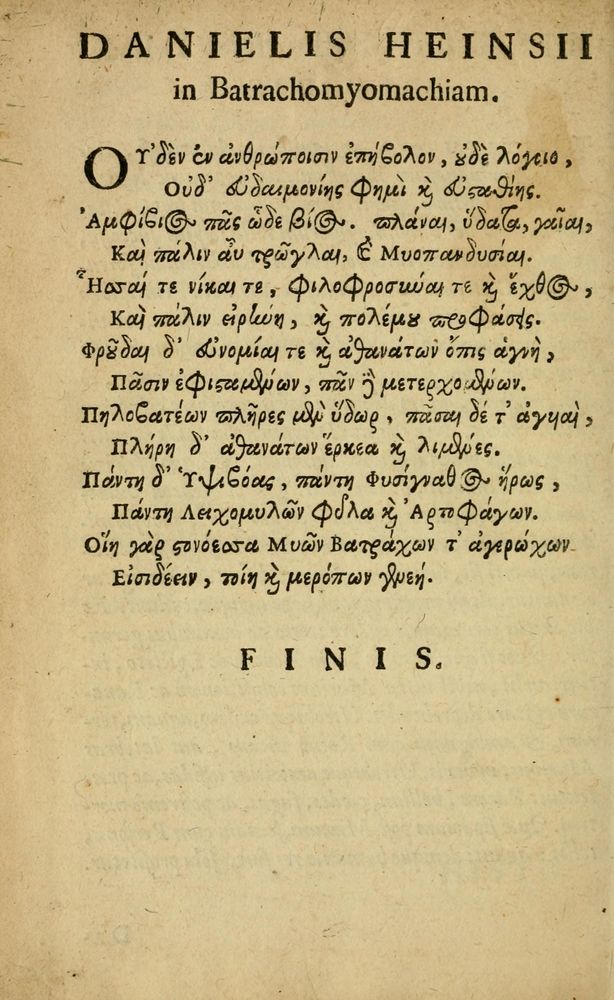 DANIELIS HEINSII
in Batrachomyomachiam.
Οὐδὲν ἐν ἀνθρώποισιν ἐπήβολον, οὐδὲ λόγοιο,
Οὐδ' εὐδαιμονίης φημὶ καὶ εὐσταθίης.
Ἀμφίβιος πᾶς ὧδε βίος. πλάναι, ὕδατα, γαῖαι,
Καὶ πάλιν αὖ τρῶγλαι, καὶ Μυοπανδυσίαι.
Ἧσσαί τε νίκαι τε, φιλοφροσύναι τε καὶ ἔχθος,
Καὶ πάλιν εἰρήνη, καὶ πολέμου προφάσις.
Φροῦδαι δ' εὐνομίαι τε καὶ ἀθανάτων ὄπις ἁγνὴ,
Πᾶσιν ἐφισταμένων, πᾶν δὲ μετερχομένων.
Πηλοβατέων πλῆρες μὲν ὕδωρ, πᾶσαι δέ τ' ἀγυιαὶ,
Πλήρη δ' ἀθανάτων ἕρκεα καὶ λιμένες.
Πάντη δ' Ὑψιβόας, πάντη Φυσίγναθος ἥρως,
Πάντη Λειχομυλῶν φῦλα καὶ Ἀρτοφάγων.
Οἵη γὰρ στονόεσσα Μυῶν Βατράχων τ' ἀγερώχων
Εἰσιδέειν, τοίη καὶ μερόπων γενεή.
FINIS.